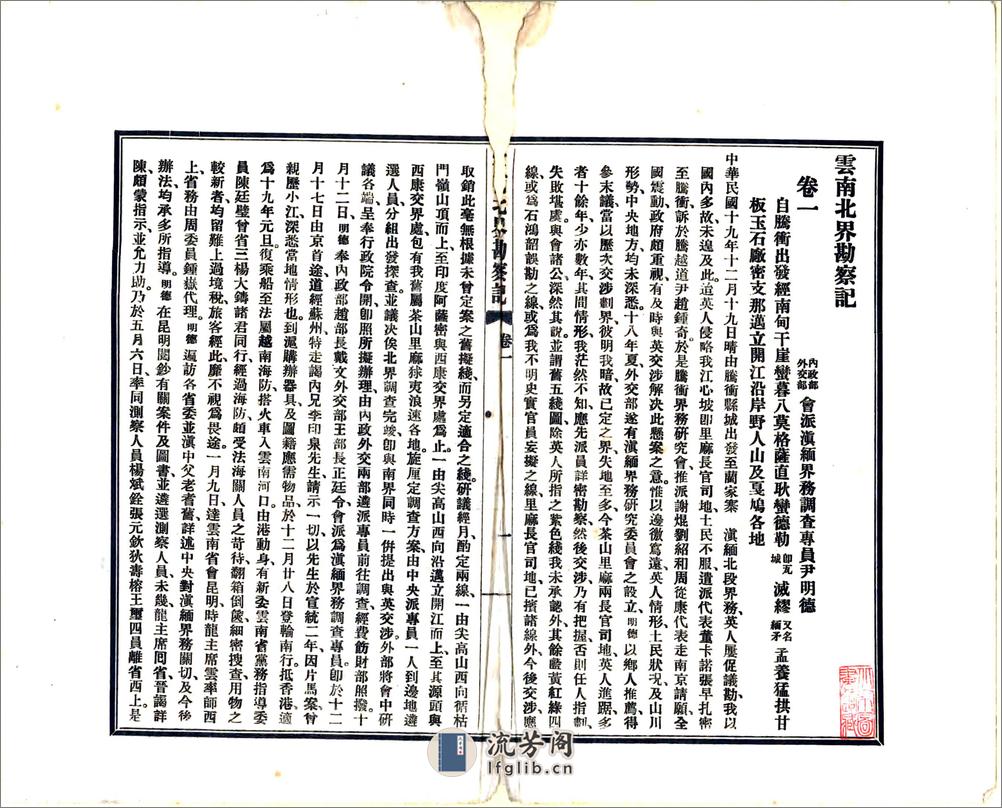 雲南北界勘察記
卷一
內政部外交部會派滇緬界務調查專員尹明德
自騰衝出發經南甸干崖蠻暮八莫格薩直耿蠻德勒卽瓦城滅繆又名緬矛孟養猛拱甘
板玉石廠密支那邁立開江沿岸野人山及戛鳩各地
中華民國十九年十二月十九日晴由騰衝縣城出發至蘭家寨 滇緬北段界務英人屢促議勘我以
國內多故未遑及此迨英人侵略我江心坡卽里麻長官司地土民不服遣派代表董卡諾張早扎密
至騰衝訴於騰越道尹趙鍾奇於是騰衝界務研究會推派謝焜劉紹和周從康代表走南京請願全
國震動政府頗重視有及時與英交涉解決此懸案之意惟以邊徼寫遠英人情形土民狀況及山川
形勢中央地方均未深悉十八年夏外交部遂有滇緬界務研究委員會之設立明德以鄉人推薦得
參末議當以歷次交涉劃界彼明我暗故已定之界失地至多今茶山里麻兩長官司地英人進踞多
者十餘年少亦數年其間情形我茫然不知應先派員詳密勘察然後交涉乃有把握否則任人指劃
失敗堪虞與會諸公深然其說並謂舊五綫圖除英人所指之紫色綫我未承認外其餘藍黃紅綠四
線或爲石鴻韶誤勘之線或爲我不明史實官員妄擬之線里麻長官司地已擯諸線外今後交涉應
取銷此毫無根據未曾定案之舊擬綫而另定適合之綫研議經月酌定兩線一由尖高山西向循枯
門嶺山頂上至印度阿薩密與西康交界處爲止一由尖高山西向沿邁立開江而上至其源頭與
西康交界處包有我舊屬茶山里麻猍夷浪速各地旋厘定調查方案由中央派專員一人到邊地遴
選人員分組出發探查並議決俟北界調查完竣卽與南界同時一併提出與英交涉外部將會中研
議各端呈奉行政院令開卽照所擬辦理由內政外交兩部遴派專員前往調查經費筯財部照撥十
月十二日明德奉內政部趙部長戴文外交部王部長正廷令會派爲滇緬界務調查專員卽於十二
月十七日由京首途道經蘇州特走謁內兄李印泉先生請示一切以先生於宣統二年因片馬案曾
親歷小江深悉當地情形也到滬購辦器具及圖籍應需物品於十二月廿八日登輪南行抵香港適
爲十九年元旦復乘船至法屬越南海防搭火車入雲南河口由港動身有新委雲南省黨務指導委
員陳廷璧曾省三楊大鑄諸君同行經過海防頗受法海關人員之苛待翻箱倒篋細密搜查用物之
較新者均留難上過境稅旅客經此靡不視爲畏途一月九日達雲南省會昆明時龍主席雲率師西
上省務由周委員鍾嶽代理明德遍訪各省委並滇中父老耆舊詳述中央對滇緬界務關切及今後
辦法均承多所指導明德在昆明閱鈔有關案件及圖書並遴選測察人員未幾龍主席囘省晉謁詳
陳頗蒙指示並允力助乃於五月六日率同測察人員楊斌銓張元欽狄壽榕王璽四員離省西上是
北界勘察記 卷一 一
流芳阁
lfglib.cn